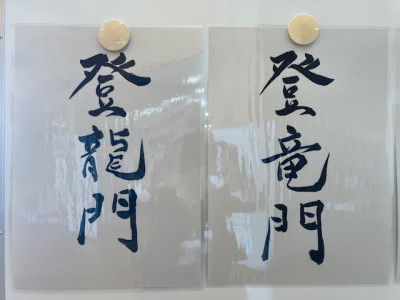 登龍門
登竜門